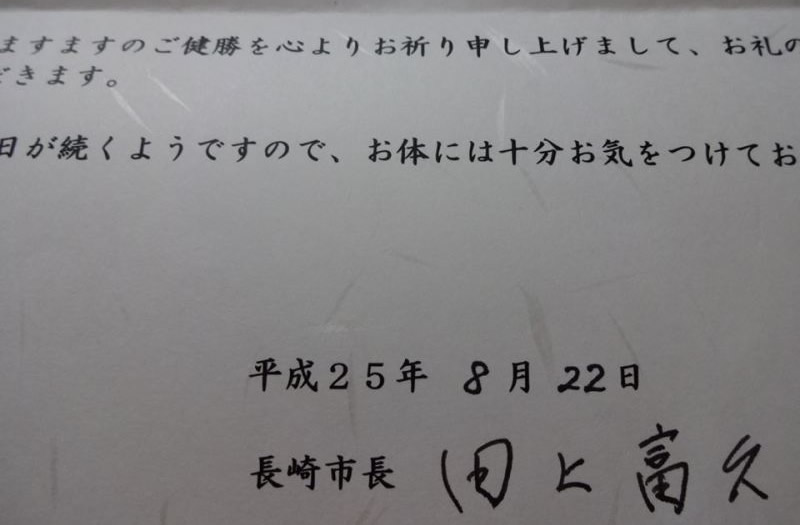 ますますのご健勝を心よりお祈り申し上げまして、お礼の
できます。
日が続くようですので、お体には十分お気をつけてお
平成25年 8月 22日
長崎市長 田上富久